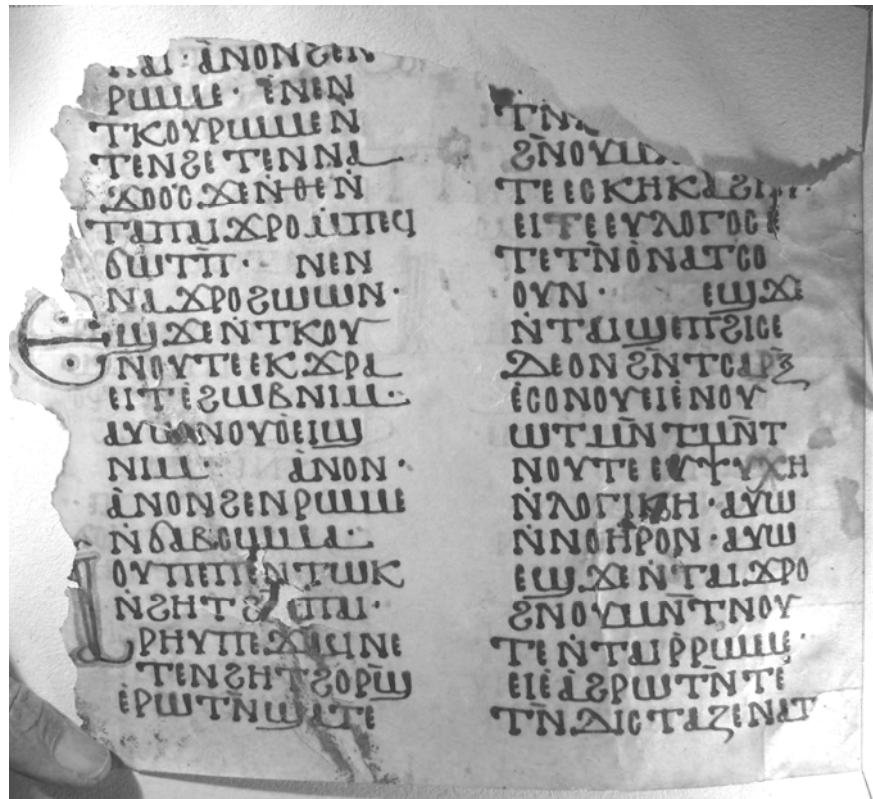 ⲡⲁⲓ· ⲁⲛⲟⲛϩⲉⲛ
ⲣⲱⲙⲉ· ⲉⲛⲉⲛ
ⲧⲕⲟⲩⲣⲱⲙⲉⲛ
ⲧⲉⲛϩⲉⲧⲉⲛⲛⲁ
ϫⲟⲟⲥϫⲉⲛ̇ⲑⲉⲛ̇
ⲧⲁⲡⲁⲓϫⲣⲟⲙ̇ⲡⲉϥ
ϭⲱⲧⲡ̄·· ⲛⲉⲛ
ⲛⲁϫⲣⲟϩⲱⲱⲛ·
ⲉϣϫⲉⲛ̇ⲧⲕⲟⲩ
ⲛⲟⲩⲧⲉⲉⲕϫⲣⲁ
ⲉⲓⲧⲉ̇ϩⲱⲃⲛⲓⲙ·
ⲁⲩⲱⲛⲟⲩⲟ̇ⲉⲓϣ
ⲛⲓⲙ· ⲁ̇ⲛⲟⲛ·
ⲁ̇ⲛⲟⲛϩⲉⲛⲣⲱⲙⲉ
ⲛ̇ϭⲁⲃⲥⲩⲙⲁ·
ⲟⲩⲡⲉⲡⲉⲛⲧⲱⲕ
ⲛ̇ϩⲏⲧϩⲙ̄ⲡⲁⲓ·
ⲁⲣⲏⲩⲡⲉϫⲓⲛⲛⲉ
ⲧⲉⲛϩⲏⲧϩⲟⲣϣ̄
ⲉ̇ⲣⲱⲧⲛ̄ϣⲁⲧⲉ
ⲧⲛ̄
ϩⲛⲟⲩⲙ
ⲧⲉⲉⲥⲕⲏⲕⲁϩⲏ
ⲉⲓⲧⲉⲉⲩⲗⲟⲅⲟⲥⲉ
ⲧⲉⲧⲛ̄ⲟ̇ⲛⲁⲧⲥⲟ
ⲟⲩⲛ· ⲉϣϫⲉ
ⲛ̇ⲧⲁⲓϣⲉⲡϩⲓⲥⲉ
ⲇⲉⲟⲛϩⲛ̄ⲧⲥⲁⲣⲝ
ⲉ̇ⲥⲟⲛⲟⲩⲉⲓⲉ̇ⲛⲟⲩ
ⲱⲧⲙⲛ̄ⲧⲙⲛ̄ⲧ
ⲛⲟⲩⲧⲉⲉⲩⲯⲩⲭⲏ
ⲛ̇ⲗⲟⲅⲓⲕⲏ·ⲁⲩⲱ
ⲛ̇ⲛⲟⲏⲣⲟⲛ·ⲁⲩⲱ
ⲉϣϫⲉⲛ̇ⲧⲁⲓϫⲣⲟ
ϩⲛⲟⲩⲙⲛ̄ⲧⲛⲟⲩ
ⲧⲉⲛ̇ⲧⲁⲓⲣ̇ⲣⲱⲙⲉ·
ⲉⲓⲉⲁϩⲣⲱⲧⲛ̄ⲧⲉ
ⲧⲛ̄ⲇⲓⲥⲧⲁⲍⲉⲛⲁⲧ